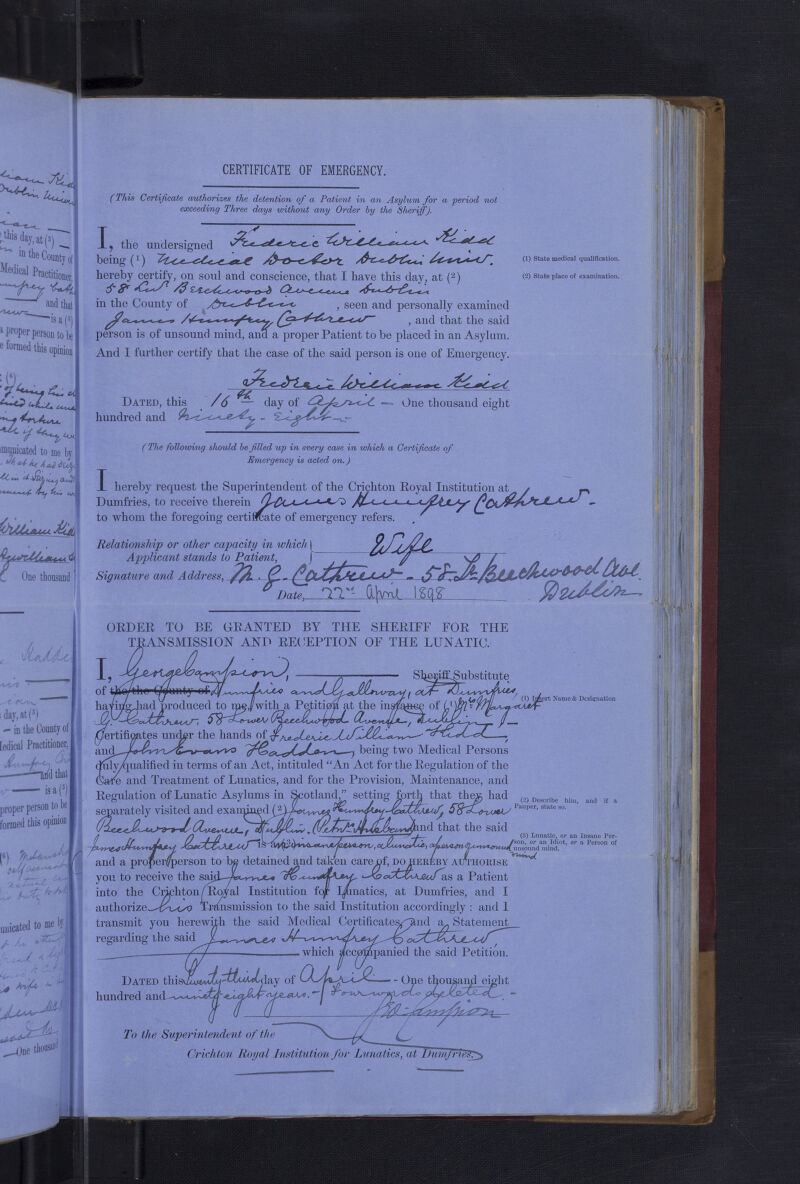 CERTIFICATE OF EMERGENCY.
(This Certificate authorizes the detention of a Patient in an Asylum for a period not
exceeding Three days without any Order by the Sheriff).
I, the undersigned Frederic William Kidd
being (1) Medical Doctor Dublin Univ.
(1) State medical qualification.
hereby certify, on soul and conscience, that I have this day, at (2)
(2) State place of examination.
58 Lwr Beechwood Avenue Dublin
in the County of Dublin, seen and personally examined
James Humfrey Cathrew, and that the said
person is of unsound mind, and a proper Patient to be placed in an Asylum.
And I further certify that the case of the said person is one of Emergency.
Frederic William Kidd
DATED, this 16th day of April — One thousand eight
hundred and Ninety-Eight
(The following should be filled up in every case in which a Certificate of
Emergency is acted on.)
I hereby request the Superintendent of the Crichton Royal Institution at
Dumfries, to receive therein James Humfrey Cathrew -
to whom the foregoing certificate of emergency refers.
Relationship or other capacity in which
Applicant stands to Patient, Wife
Signature and Address, M. G. Cathrew - 58 Lr Beechwood Ave.
Dublin
Date, 22nd April 1898
ORDER TO BE GRANTED BY THE SHERIFF FOR THE
TRANSMISSION AND RECEPTION OF THE LUNATIC.
I, George Campsion, — Sheriff Substitute
of the the County of Dumfries and Galloway, at Dumfries,
having had produced to me, with a Petition at the instance of (1) Mrs Margaret
(1) Insert Name & Designation
G. Cathrew, 58 Lower Beechwood Avenue, Dublin
Certificates under the hands of Frederic William Kidd,
and John Evans Hadden, being two Medical Persons
duly qualified in terms of an Act, intituled "An Act for the Regulation of the
Care and Treatment of Lunatics, and for the Provision, Maintenance, and
Regulation of Lunatic Asylums in Scotland," setting forth that they had
separately visited and examined (2) James Humfrey Cathrew, 58 Lower
(2) Describe him, and if a
Pauper, state so.
Beechwood Avenue, Dublin, Petnrs Husband and that the said
James Humfrey Cathrew is an insane person, a lunatic, a person of unsound
mind
(3) Lunatic, or an Insane Per-
son, or an Idiot, or a Person of
unsound mind.
and a proper person to be detained and taken care of, DO HEREBY AUTHORISE
you to receive the said James Humfrey Cathrew as a Patient
into the Crichton Royal Institution for Lunatics, at Dumfries, and I
authorize his Transmission to the said Institution accordingly: and I
transmit you herewith the said Medical Certificates, and a Statement
regarding the said James Humfrey Cathrew
which accompanied the said Petition.
DATED this Twenty third day of April - One thousand eight
hundred and ninety eight years. - Four words deleted. -
Geo Campsion
To the Superintendent of the
Crichton Royal Institution for Lunatics, at Dumfries.